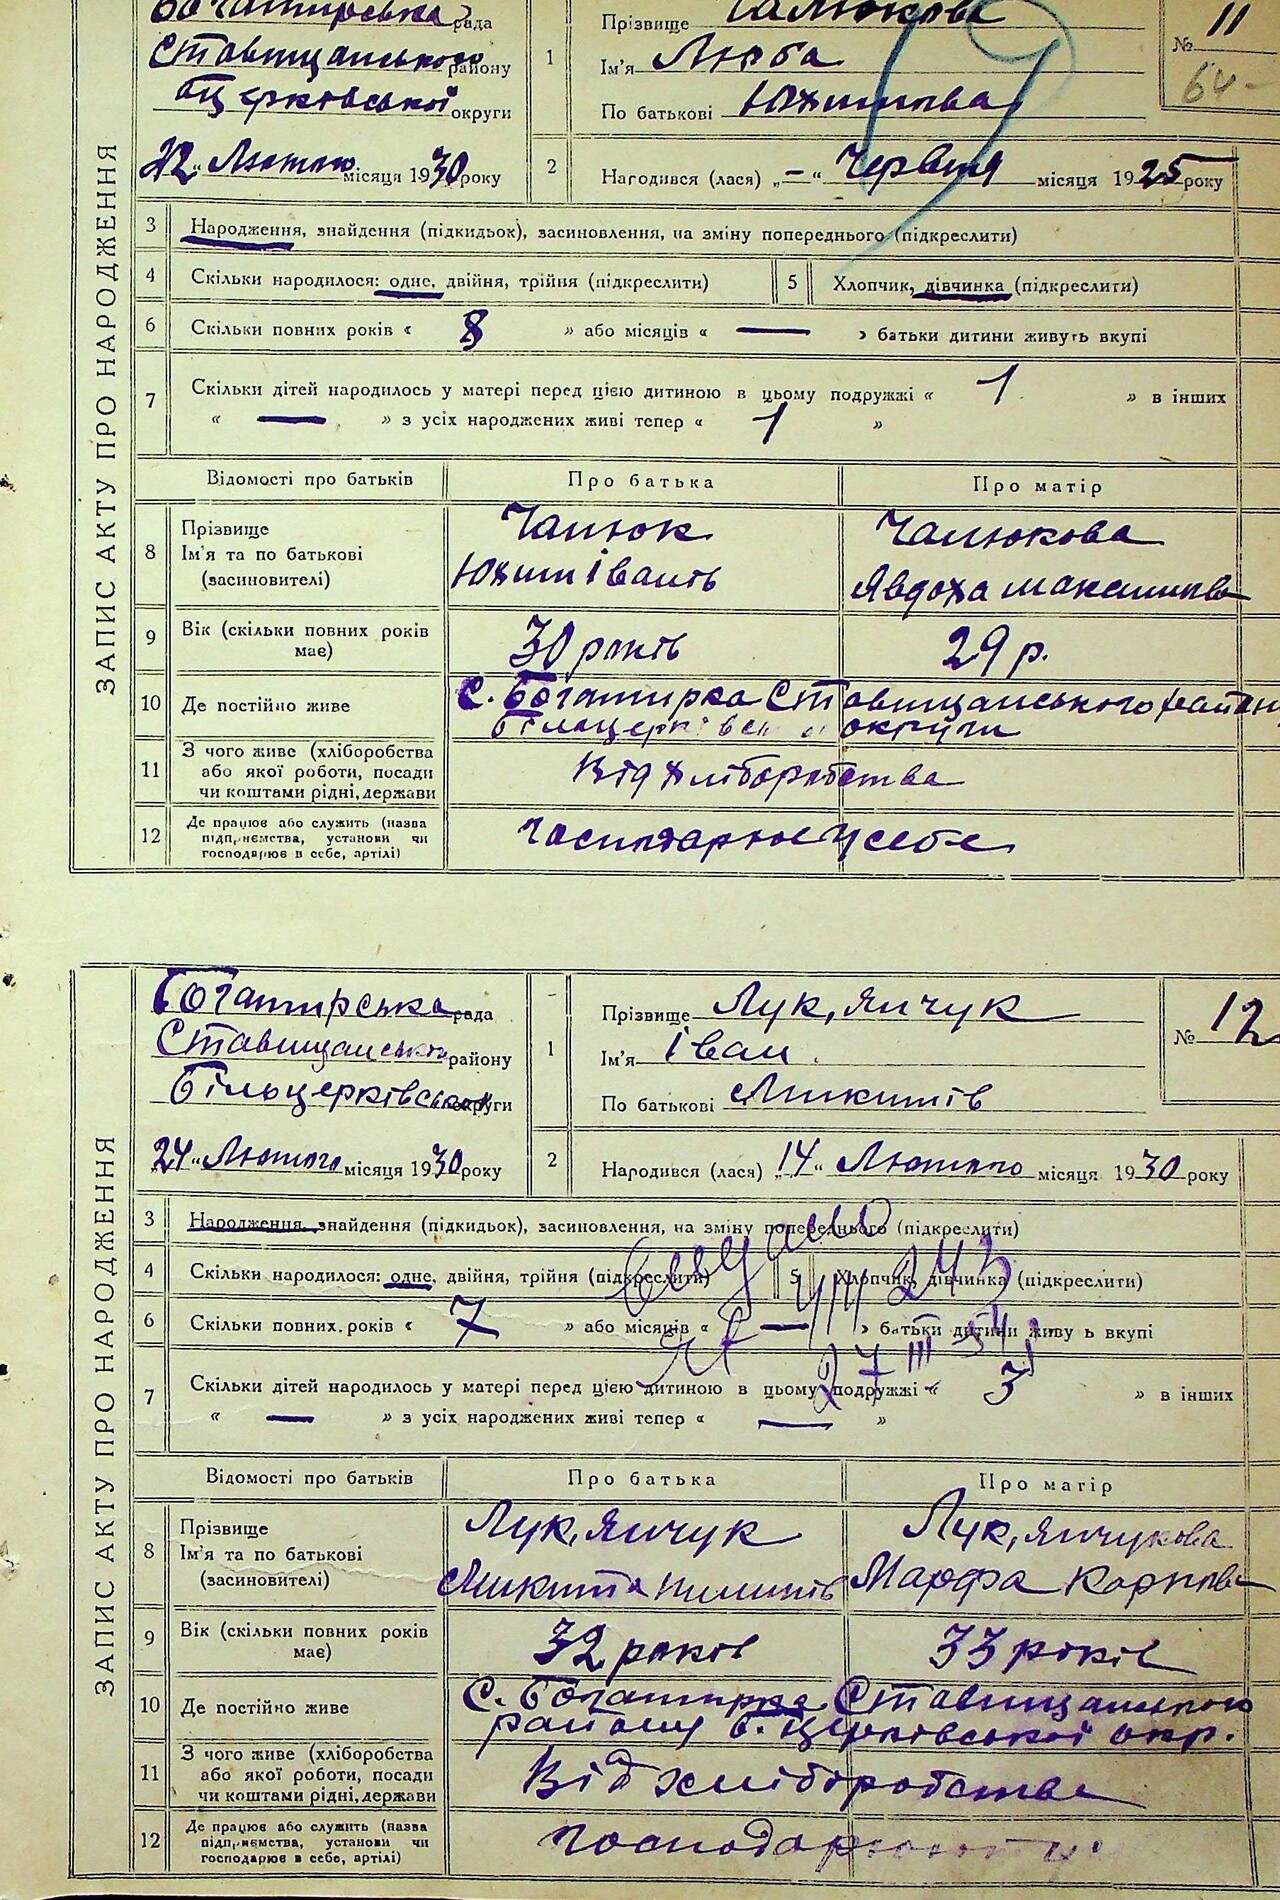 Богатирська рада
Ставищанського району
Б Церківської округи
22 " Лютого місяця 1930 року
1
Прізвище Чалюкова
Ім'я Люба
По батькові Юхимова
№ 11
64-
2
Народився (лася) „ — " Червня місяця 1925 року
ЗАПИС АКТУ ПРО НАРОДЖЕННЯ
3 Народження, знайдення (підкидьок), засиновлення, на зміну попереднього (підкреслити)
4 Скільки народилося: одне, двійня, трійня (підкреслити) 5 Хлопчик, дівчинка (підкреслити)
6 Скільки повних років « 8 » або місяців « — » батьки дитини живуть вкупі
7 Скільки дітей народилось у матері перед цією дитиною в цьому подружжі « 1 » в інших
« — » з усіх народжених живі тепер « 1 »
Відомості про батьків Про батька Про матір
8 Прізвище Чалюк Чалюкова
Ім'я та по батькові Юхим Іванів Явдоха Максимова
(засиновителі)
9 Вік (скільки повних років має) 30 років 29 р.
10 Де постійно живе с. Богатирка Ставищанського району
Білоцерківської округи
11 З чого живе (хліборобства
або якої роботи, посади
чи коштами рідні, держави
Від хліборобства
12 Де працює або служить (назва
підприємства, установи чи
господарює в себе, артілі)
господарює у себе
Богатирська рада
Ставищанського району
Більцерківської округи
24 " Лютого місяця 1930 року
1
Прізвище Лук,янчук
Ім'я Іван
По батькові Микитів
№ 12
2
Народився (лася) „ 14 " Лютого місяця 1930 року
ЗАПИС АКТУ ПРО НАРОДЖЕННЯ
3 Народження, знайдення (підкидьок), засиновлення, на зміну попереднього (підкреслити)
4 Скільки народилося: одне, двійня, трійня (підкреслити) 5 Хлопчик, дівчинка (підкреслити)
6 Скільки повних років « 7 » або місяців « — » батьки дитини живу ь вкупі
27 III 54
7 Скільки дітей народилось у матері перед цією дитиною в цьому подружжі « 3 » в інших
« — » з усіх народжених живі тепер « — »
Відомості про батьків Про батька Про матір
8 Прізвище Лук,янчук Лук,янчукова
Ім'я та по батькові Микита Пилипів Марфа Карпова
(засиновителі)
9 Вік (скільки повних років має) 32 років 33 років
10 Де постійно живе с. Богатирка Ставищанського
району Б. Церківської окр.
11 З чого живе (хліборобства
або якої роботи, посади
чи коштами рідні, держави
Від хліборобства
12 Де працює або служить (назва
підприємства, установи чи
господарює в себе, артілі)
господарюють у